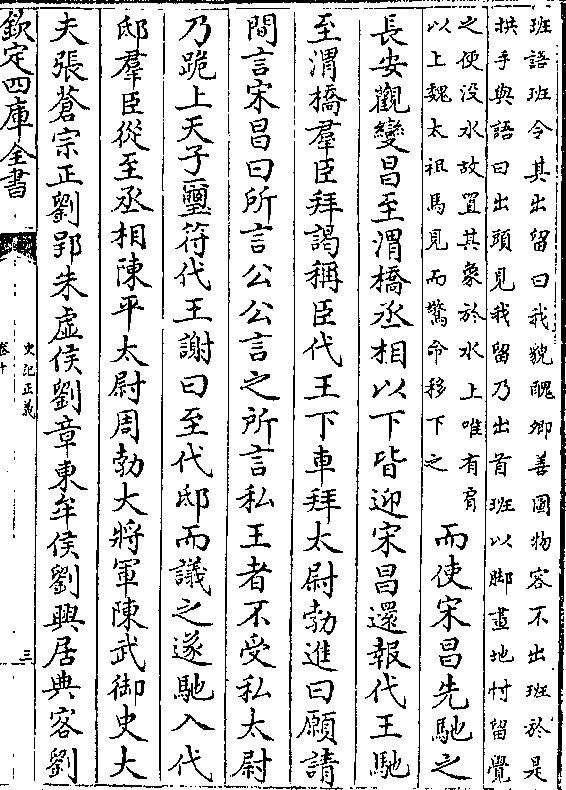 班語班令其出留曰我貌醜卿善圖物容不出班於是
拱手與語曰出頭見我留乃出首班以脚畫地忖留覺
之便没水故置其象於水上唯有肩
以上魏太祖馬見而驚命移下之
而使宋昌先馳之
長安觀變昌至渭橋丞相以下皆迎宋昌還報代王馳
至渭橋羣臣拜謁稱臣代王下車拜太尉勃進曰願請
間言宋昌曰所言公公言之所言私王者不受私太尉
乃跪上天子璽符代王謝曰至代邸而議之遂馳入代
邸羣臣從至丞相陳平太尉周勃大將軍陳武御史大
夫張蒼宗正劉郢朱虚侯劉章東牟侯劉興居典客劉
欽定四庫全書
史記正義
卷十
三